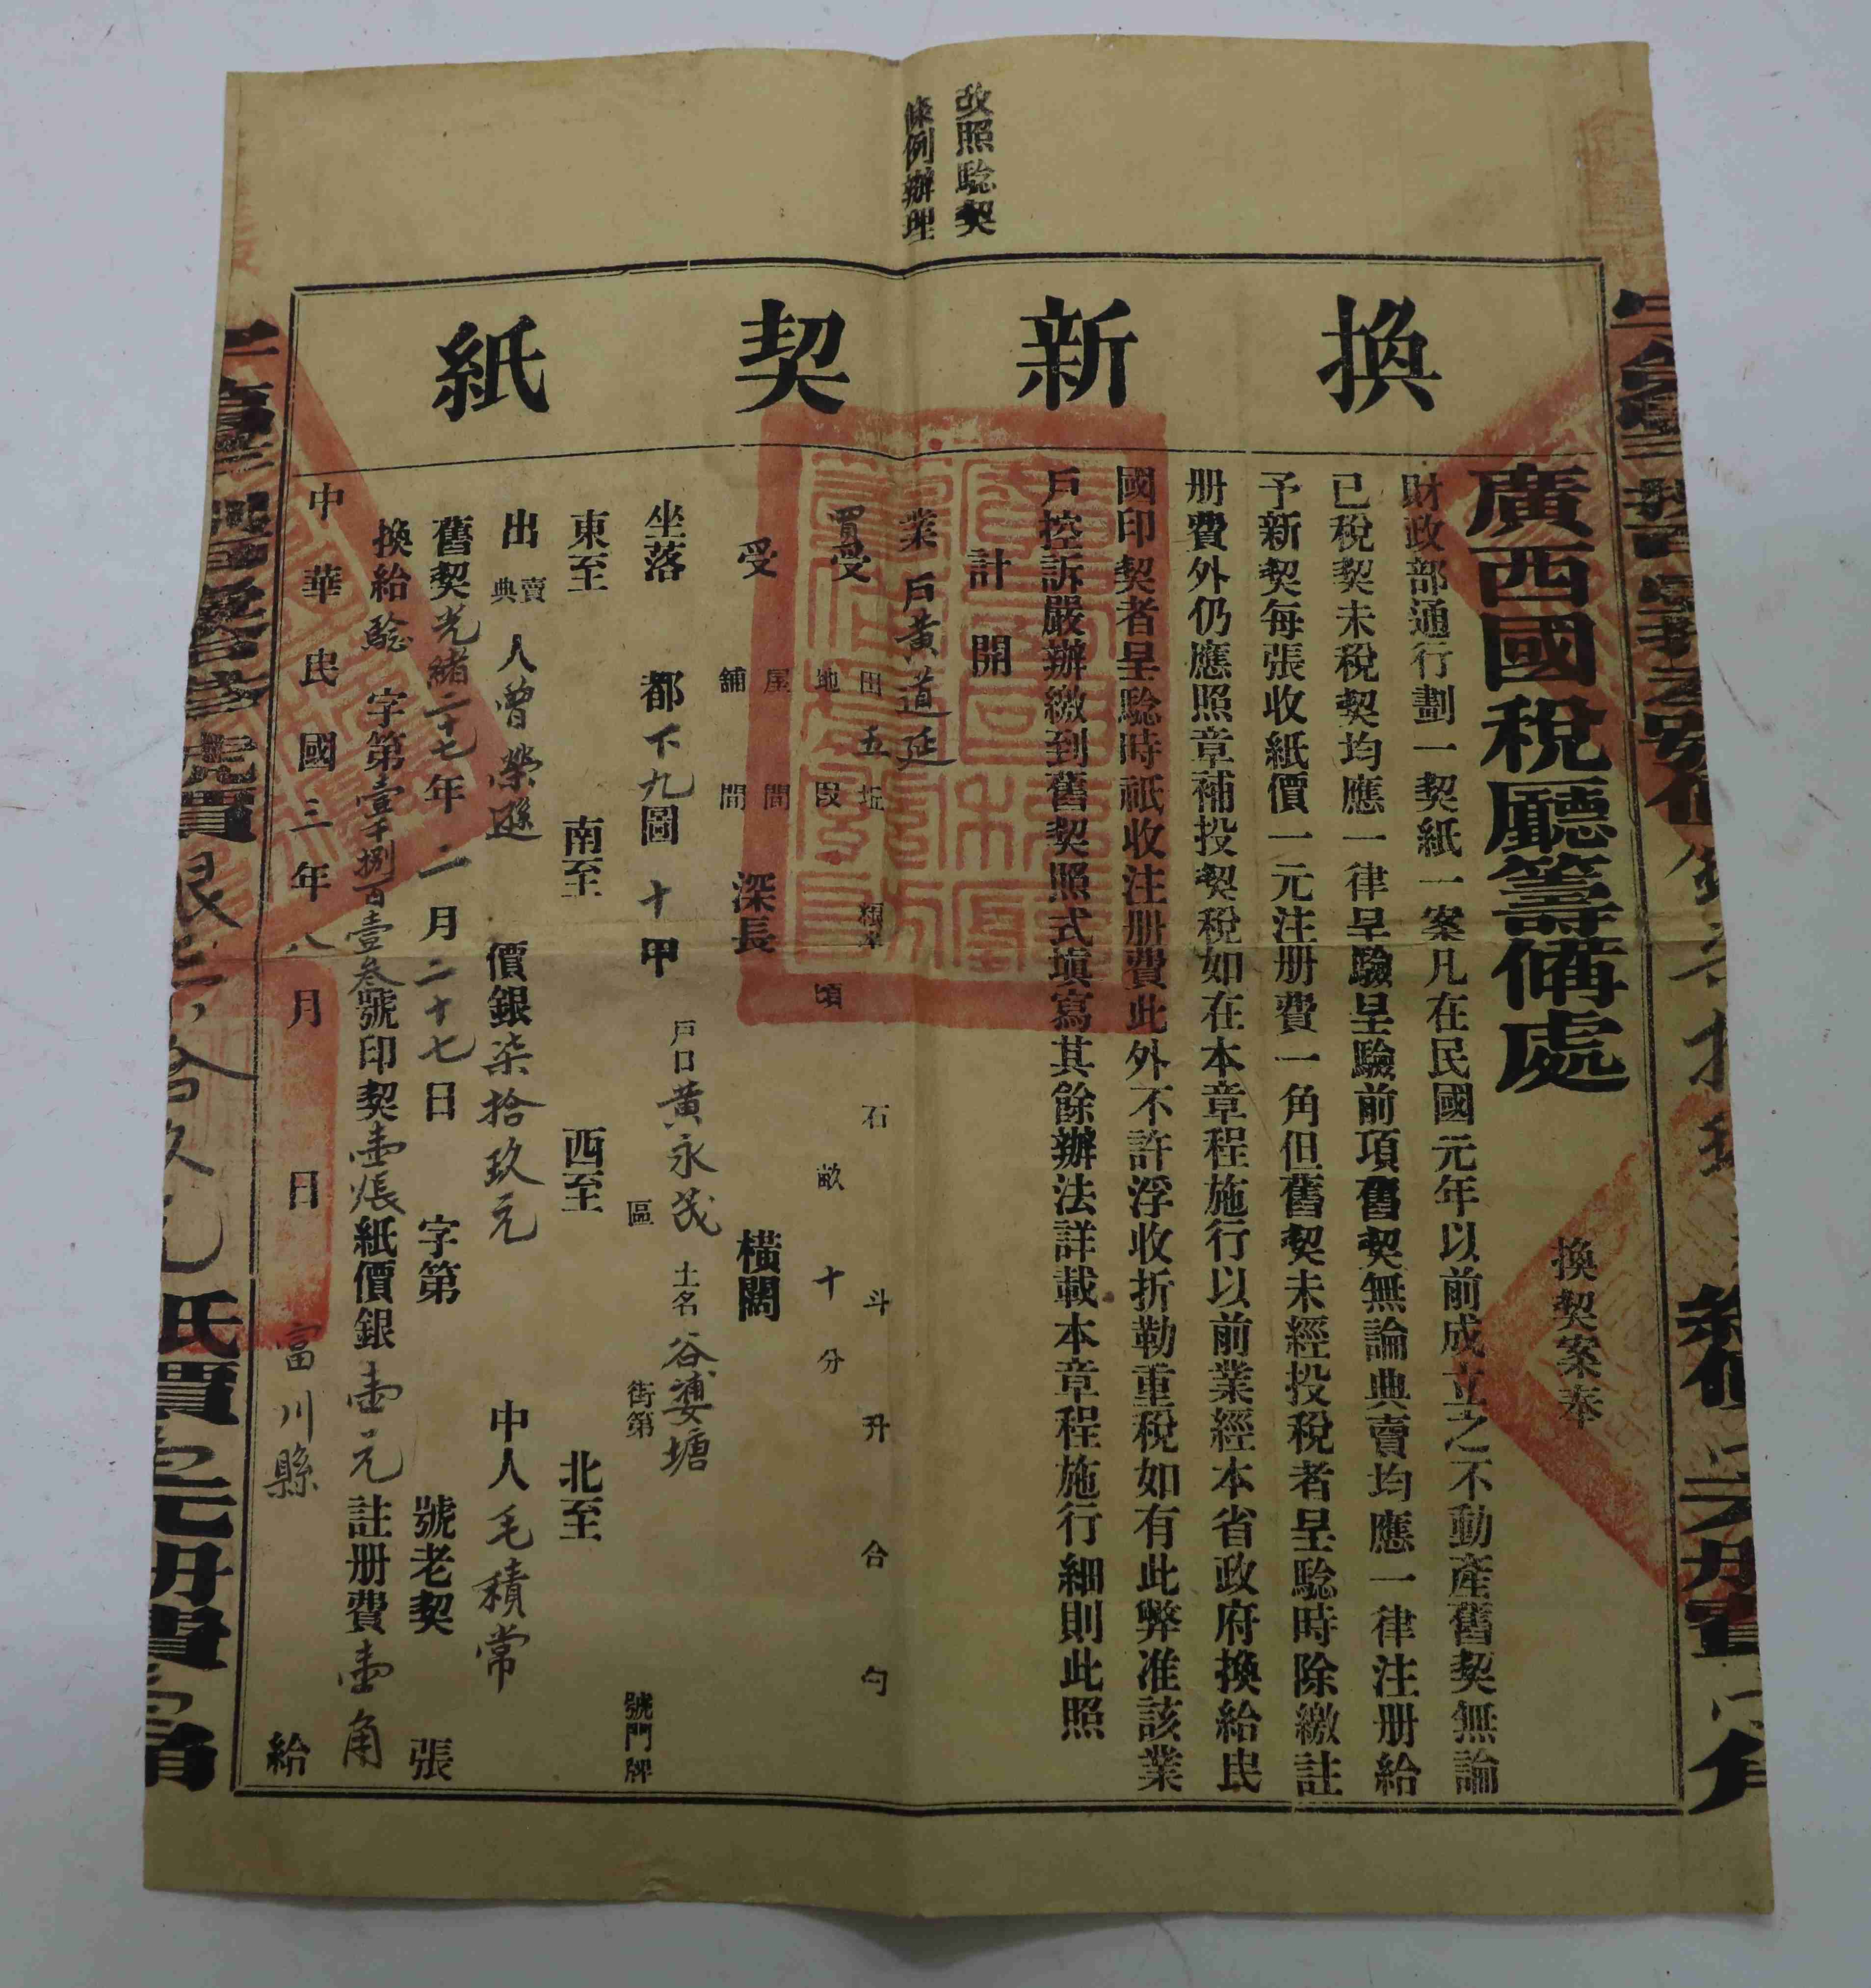 改照騐契
條例辦理
換新契紙
換契案奉
廣西國稅廳籌備處
財政部通行劃一契紙一案凡在民國元年以前成立之不動產舊契無論
已稅契未稅契均應一律呈驗呈驗前項舊契無論典賣均應一律注册給
予新契每張收紙價一元注册費一角但舊契未經投稅者呈騐時除繳註
册費外仍應照章補投契稅如在本章程施行以前業經本省政府換給民
國印契者呈騐時祇收注册費此外不許浮收折勒重稅如有此弊准該業
戶控訴嚴辦繳到舊契照式填寫其餘辦法詳載本章程施行細則此照
計開
業戶黃道廷
買受 田五坵 石斗升合勺
地段 頃畝十分
受 屋間 舖間 深長 橫闊
坐落 都下九圖十甲 戶口黃永茂 土名谷婆塘
區 街第 號門牌
東至 南至 西至 北至
出賣典人曾榮遜 價銀柒拾玖元 中人毛積常
舊契光緒二十七年二月二十七日 字第 號老契 張
換給騐字第壹千捌百壹叁號印契壹張紙價銀壹元註册費壹角
中華民國三年八月 日 富川縣 給